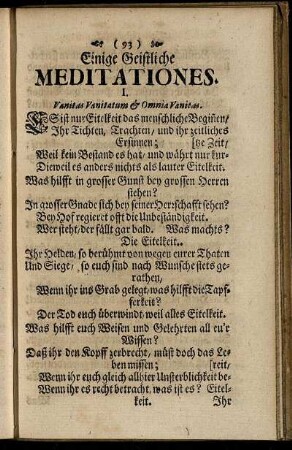 (93)
Einige Geistliche
MEDITATIONES.
I.
Vanitas Vanitatum & Omnia Vanitas.
ES ist nur Eitelkeit das menschliche Begiñen/
Ihr Tichten, Trachten, und ihr zeitliches
Ersinnen; [tze Zeit/
Weil kein Bestand es hat/ und währt nur kur-
Dieweil es anders nichts als lauter Eitelkeit.
Was hilfft in grosser Gunst bey grossen Herren
stehen?
In grosser Gnade sich bey seiner Herrschafft sehen?
Bey Hof regieret offt die Unbeständigkeit.
Wer steht/ der fällt gar bald. Was machts?
Die Eitelkeit.
Ihr Helden/ so berühmt von wegen eurer Thaten
Und Siege/ so euch sind nach Wunsche stets ge-
rathen,
Wenn ihr ins Grab gelegt/ was hilfft die Tapf-
ferkeit?
Der Tod euch überwindt/ weil alles Eitelkeit.
Was hilfft euch Weisen und Gelehrten all eu'r
Wissen?
Daß ihr den Kopff zerbrecht/ müst doch das Le-
ben missen; [reit/
Wenn ihr euch gleich allhier Unsterblichkeit be-
Wenn ihr es recht betracht/ was ist es? Eitel-
keit. Ihr